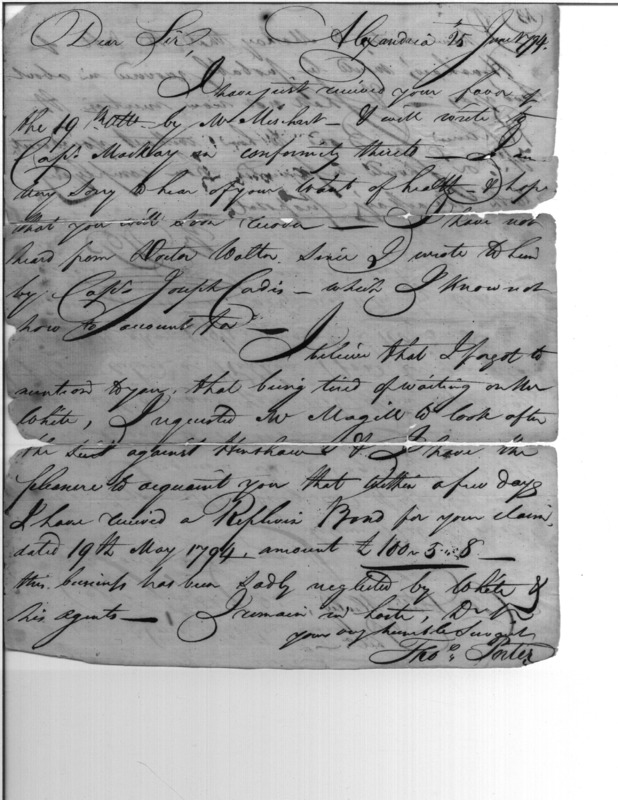 Dear Sir, Alexandria 25 June 1794.
I have just received your favor of
the 19th Ulto by Mr Mc I will write to
Capt. Mackay in conformity thereto — I am
very sorry to hear of your want of health — & hope
that you will soon recover — I have not
heard from Doctor Walton since I wrote to him
by Capt. Joseph Cordis — which I know not
how to account for —
I believe that I forgot to
mention to you, that being tired of waiting on Mr
White, I requested Mr Magill to look after
the suit against Henshaw & I have the
pleasure to acquaint you that within a few days
I have received a Replivin Bond for your claim,
dated 19th May 1794, amount £ 100 " 5 " 8 —
this business has been sadly neglected by White &
his agents — I remain in haste, Dr Sir
your very humble Servant
Thos. Porter